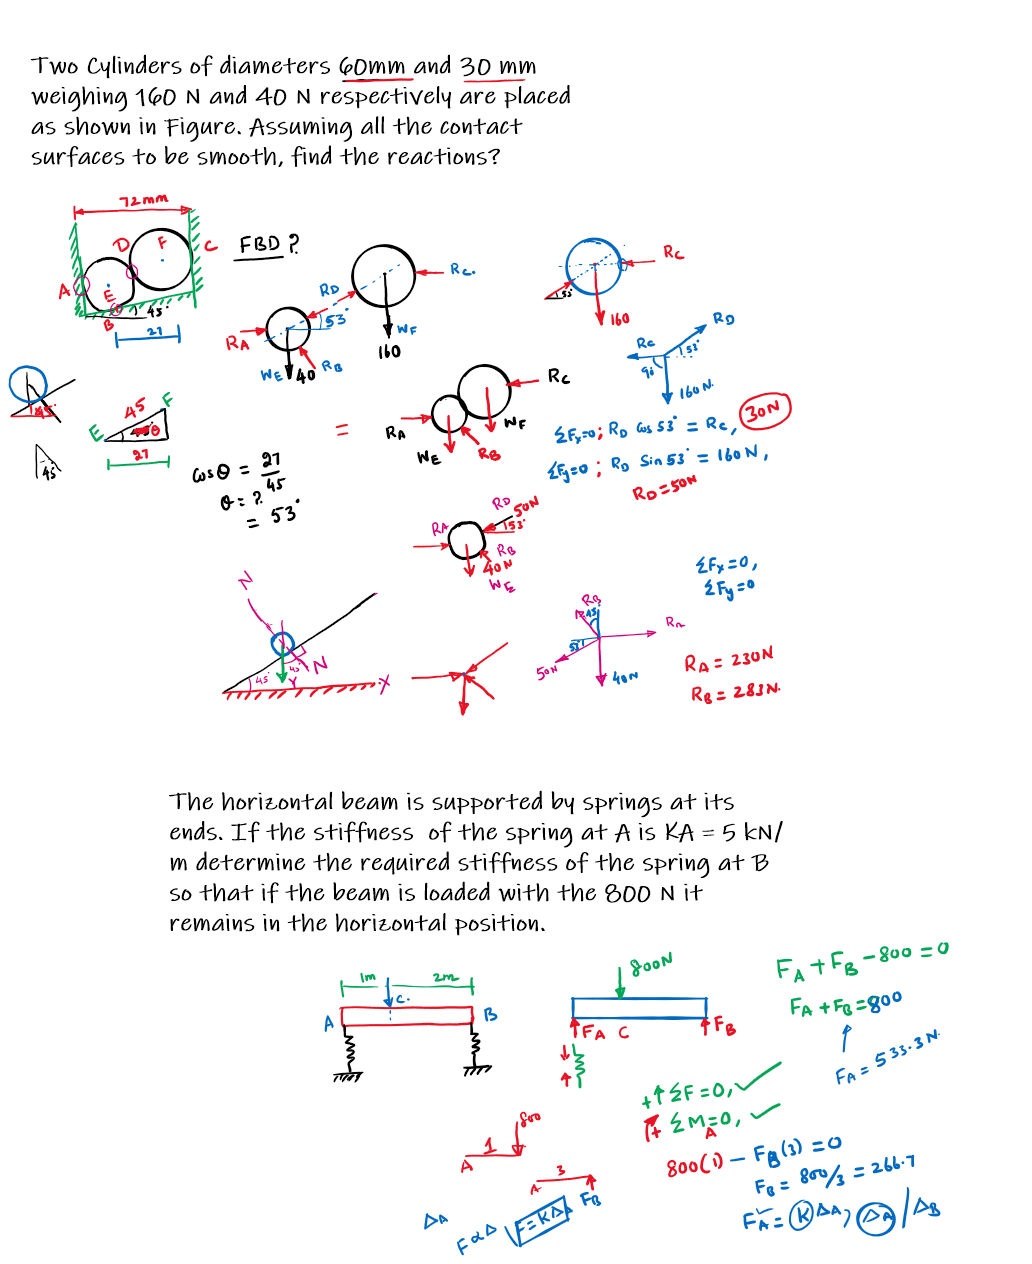 Two Cylinders of diameters 60mm and 30 mm
weighing 160 N and 40 N respectively are placed
as shown in Figure. Assuming all the contact
surfaces to be smooth, find the reactions?
72mm
D F C
A E
B 45°
27
FBD ?
RD
RA 53°
WE 40 RB
Rc.
WF
160
Rc
53°
160
Rc RD
53°
90
160N.
45 F
E θ
27
45°
45
cosθ = 27/45
θ = ?
= 53°
=
RA Rc
WE RB WF
ΣFx=0; RD Cos 53° = Rc, 30N
ΣFy=0; RD Sin 53° = 160N,
RD = 50N
RD 50N
RA 53°
RB
40N
WE
ΣFx=0,
ΣFy=0
N
45° 45° N
Y X
RB
45
53° RA
50N 40N
RA = 230N
RB = 283N.
The horizontal beam is supported by springs at its
ends. If the stiffness of the spring at A is KA = 5 kN/
m determine the required stiffness of the spring at B
so that if the beam is loaded with the 800 N it
remains in the horizontal position.
1m 2m
A C. B
800N
FA C FB
FA + FB - 800 = 0
FA + FB = 800
FA = 533.3N.
+↑ΣF=0, ✓
+ ΣMA=0, ✓
800(1) - FB(3) = 0
FB = 800/3 = 266.7
FA = K ΔA, ΔA / ΔB
800
A 1
A 3 FB
ΔA
F α Δ F=KΔ